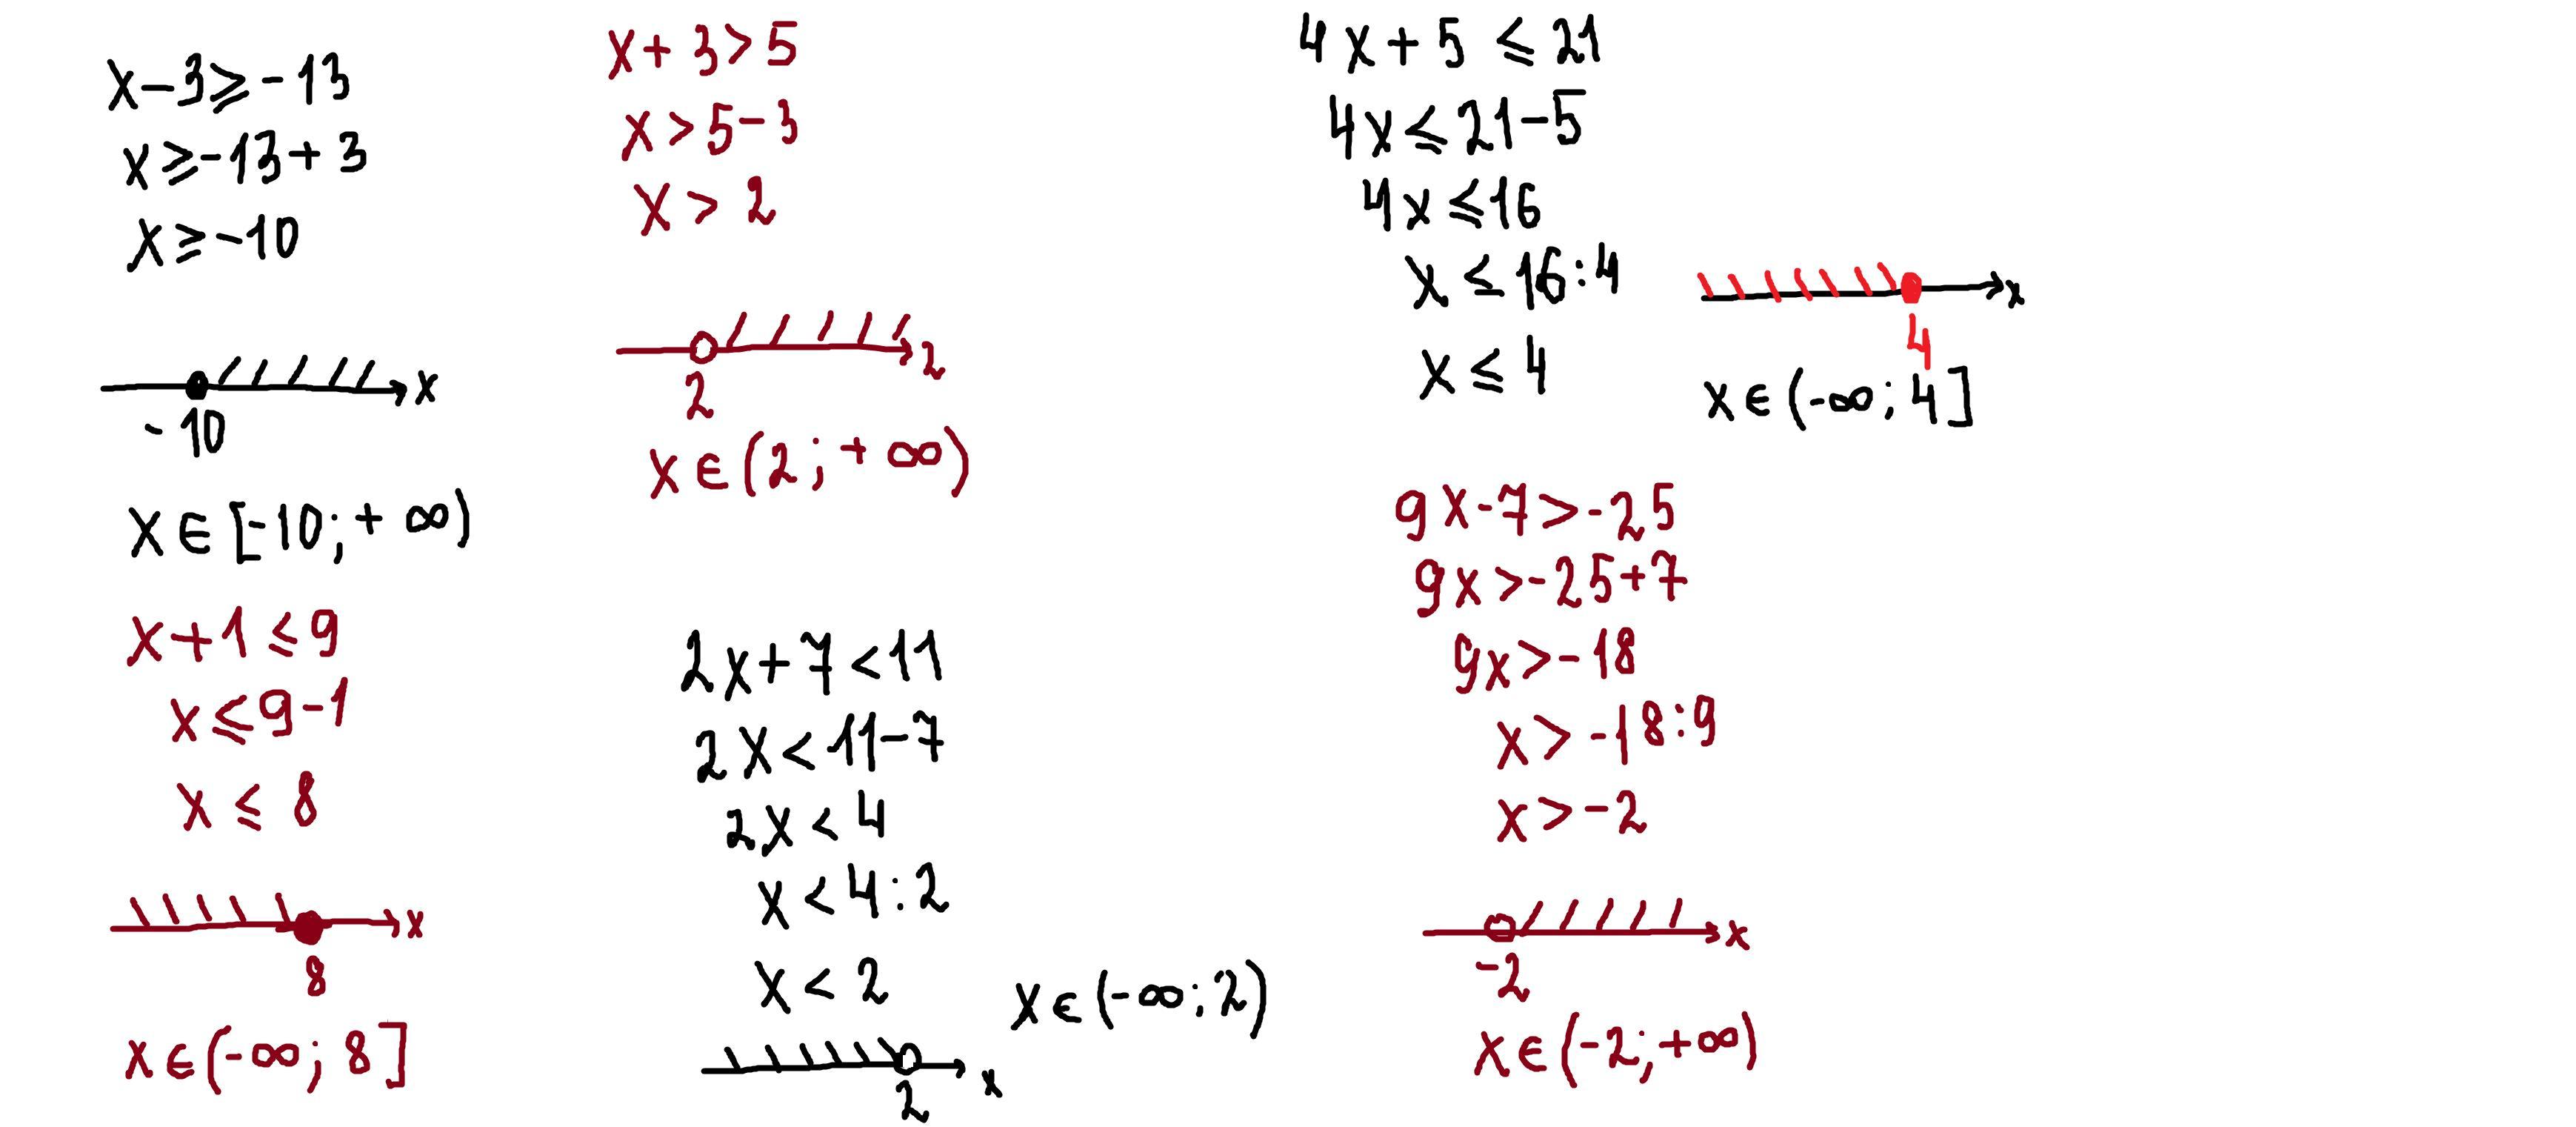 x-3⩾-13
x⩾-13+3
x⩾-10
x
-10
x∈[-10;+∞)
x+1⩽9
x⩽9-1
x⩽8
x
8
x∈(-∞;8]
x+3>5
x>5-3
x>2
2
2
x∈(2;+∞)
2x+7<11
2x<11-7
2x<4
x<4:2
x<2
x∈(-∞;2)
x
2
4x+5⩽21
4x⩽21-5
4x⩽16
x⩽16:4
x⩽4
x
4
x∈(-∞;4]
9x-7>-25
9x>-25+7
9x>-18
x>-18:9
x>-2
x
-2
x∈(-2;+∞)